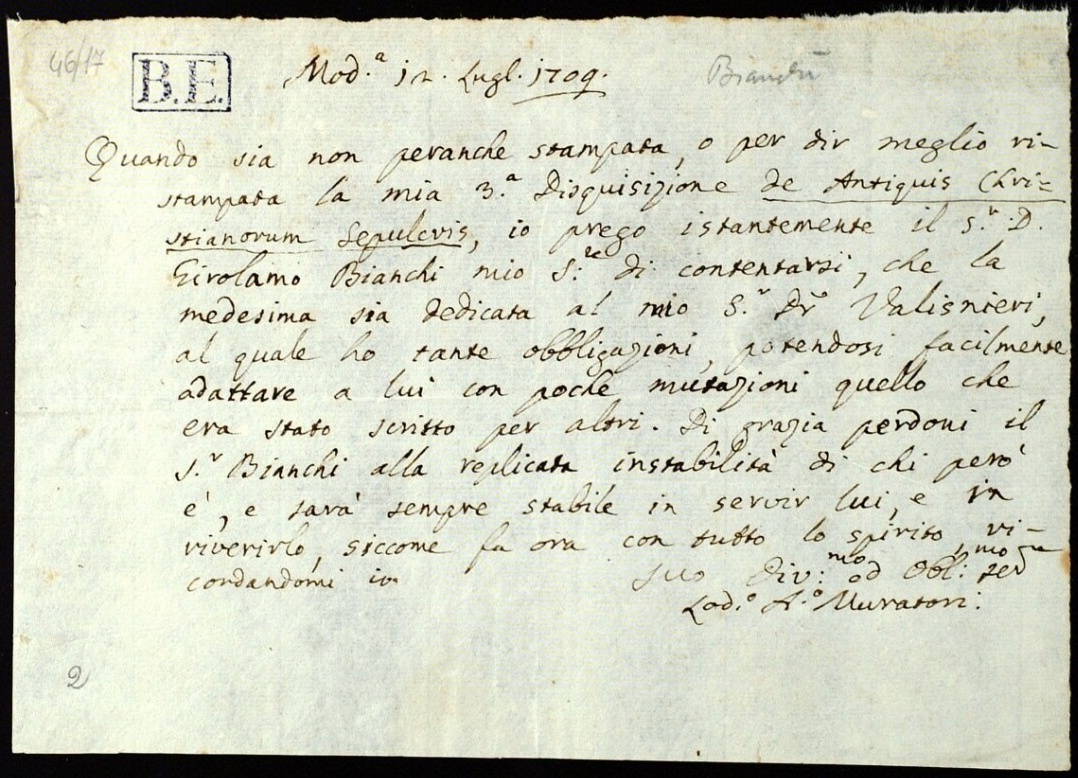 46/17
B.E.
Mod.ª 12. Lugl. 1709.
Quando sia non peranche stampata, o per dir meglio ri-
stampata la mia 3.ª Disquisizione de Antiquis Chri=
stianorum Sepulcris, io prego istantemente il S.r D.
Girolamo Bianchi mio S.re di contentarsi, che la
medesima sia dedicata al mio S.r Dr Valisnieri,
al quale ho tante obbligazioni, potendosi facilmente
adattare a lui con poche mutazioni quello che
era stato scritto per altri. Di grazia perdoni il
S.r Bianchi alla replicata instabilità di chi però
è, e sarà sempre stabile in servir lui, e in
riverirlo, siccome fa ora con tutto lo spirito, ri-
cordandomi io
suo Div:mo ed Obl:mo ser.
Lod.º A.º Muratori.
2